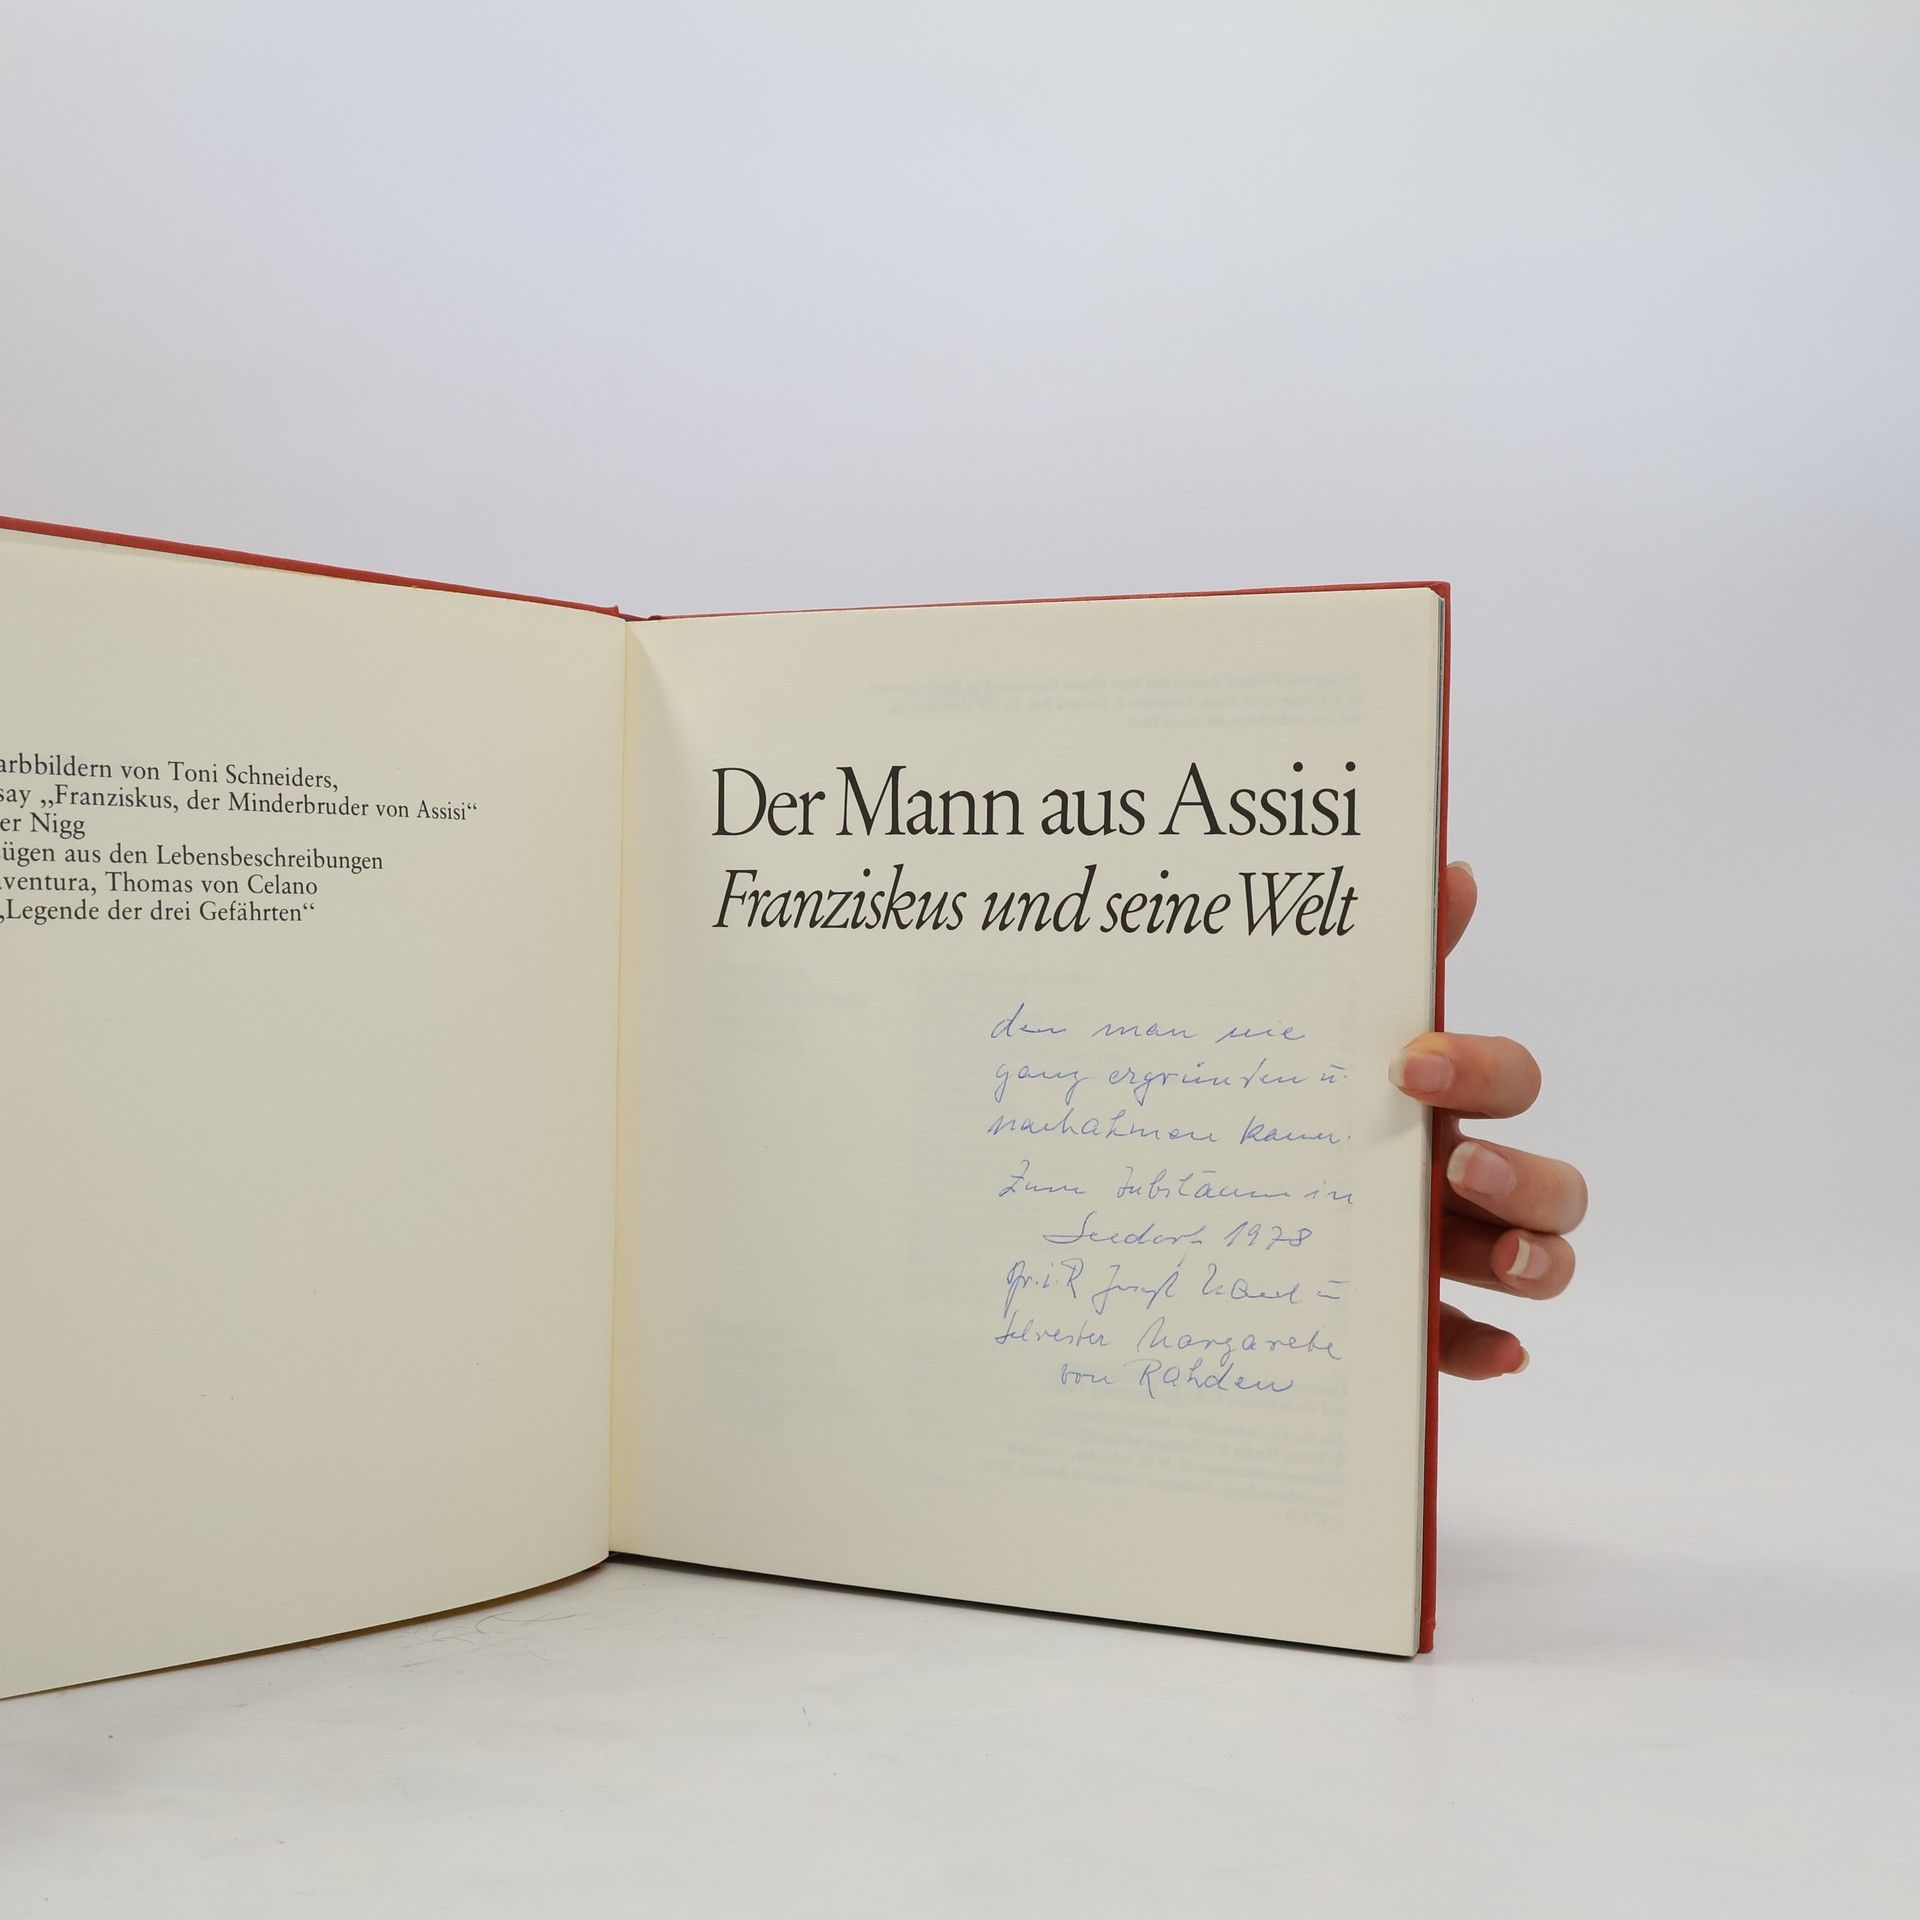 arbbildern von Toni Schneiders,
say „Franziskus, der Minderbruder von Assisi“
er Nigg
ügen aus den Lebensbeschreibungen
aventura, Thomas von Celano
„Legende der drei Gefährten“
Der Mann aus Assisi
Franziskus und seine Welt
den man nie
ganz ergründen u.
nachahmen kann.
Zum Jubiläum in
Seedorf 1978
Pfr.i.R Josef u
Silvester Margarete
von Rahden